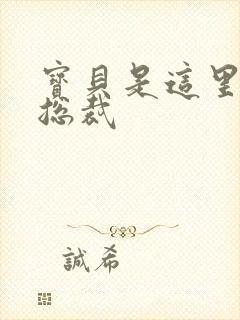 寶貝是這里
総裁
誠希